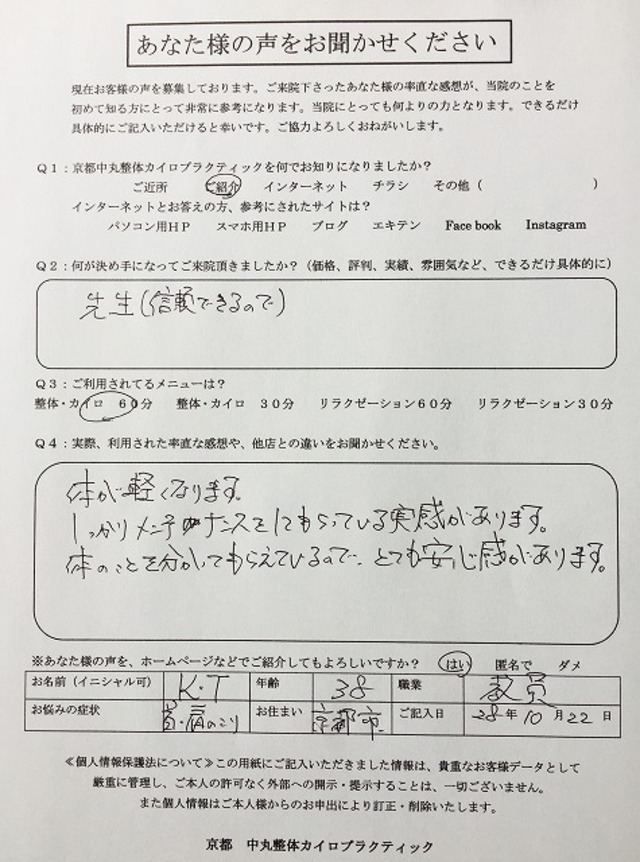 あなた様の声をお聞かせください
現在お客様の声を募集しております。ご来院下さったあなた様の率直な感想が、当院のことを
初めて知る方にとって非常に参考になります。当院にとっても何よりの力となります。できるだけ
具体的にご記入いただけると幸いです。ご協力よろしくおねがいします。
Q1：京都中丸整体カイロプラクティックを何でお知りになりましたか？
ご近所　ご紹介　インターネット　チラシ　その他（　　　　）
インターネットとお答えの方、参考にされたサイトは？
パソコン用HP　スマホ用HP　ブログ　エキテン　Face book　Instagram
Q2：何が決め手になってご来院頂きましたか？（価格、評判、実績、雰囲気など、できるだけ具体的に）
先生（信頼できるので）
Q3：ご利用されてるメニューは？
整体・カイロ　60分　整体・カイロ　30分　リラクゼーション60分　リラクゼーション30分
Q4：実際、利用された率直な感想や、他店との違いをお聞かせください。
体が軽くなります。
しっかりメンテナンスをしてもらっている実感があります。
体のことを分かってもらえているので、とても安心感があります。
※あなた様の声を、ホームページなどでご紹介してもよろしいですか？　はい　匿名で　ダメ
お名前（イニシャル可）　K・T　年齢　38　職業　教員
お悩みの症状　首・肩のこり　お住まい　京都市　ご記入日　28年10月22日
≪個人情報保護法について≫この用紙にご記入いただきました情報は、貴重なお客様データとして
厳重に管理し、ご本人の許可なく外部への開示・提示することは、一切ございません。
また個人情報はご本人様からのお申出により訂正・削除いたします。
京都　中丸整体カイロプラクティック